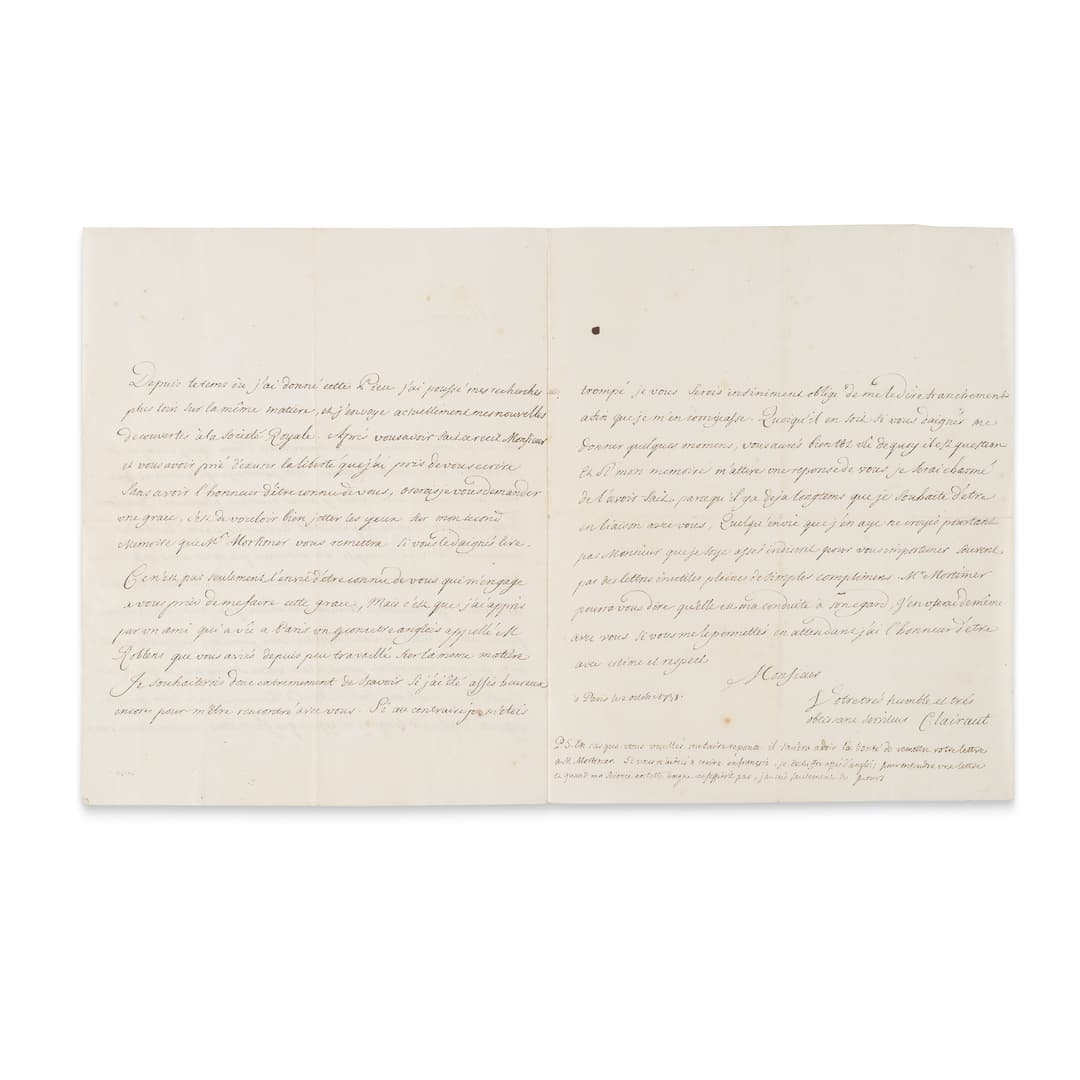 Depuis le tems où j'ai donné cette pⁿ deu j'ai poussé mes recherches
plus loin sur la même matiere, et j'envoye actuellement mes nouvelles
decouvertes à la Société Royale. Après vous avoir fait ce recit Monsieur
et vous avoir prié d'excuser la liberté que j'ai pris de vous ecrire
sans avoir l'honneur d'être connu de vous, oserois je vous demander
une grace, c'est de vouloir bien jetter les yeux sur mon second
Memoire que Mr Mortimer vous remettra si vous le daignés lire.
Ce n'est pas seulement l'envie d'être connu de vous qui m'engage
a vous prier de me faire cette grace, Mais c'est que j'ai appris
par un ami qui a vû a Paris un Geometre anglois appellé M.
Robbens que vous aviés depuis peu travaillé sur la meme matière
Je souhaiterois donc extremement de sçavoir si j'ai été assés heureux
encore pour m'être rencontré avec vous. Si au contraire je m'étois
trompé je vous serois infiniment obligé de me le dire franchement
afin que je m'en corrigeasse. Quoiqu'il en soit si vous daignés me
donner quelques momens, vous aurés bientôt vû de quoy il est question
Et si mon memoire m'attire une reponse de vous je serai charmé
de l'avoir fait parcequ'il ya deja longtems que je souhaite d'être
en liaison avec vous, Quelqu'envie que j'en aye ne croyés pourtant
pas Monsieur que je soye assés indiscret pour vous importuner souvent
par des lettres inutiles pleines de simples complimens. Mr Mortimer
pourra vous dire qu'elle est ma conduite à son egard, J'en userai de même
avec vous si vous me le permettés en attendant j'ai l'honneur d'etre
avec estime et respect
Monsieur
à Paris le 2 octobr 1738.
Votre très humble et très
obeissant serviteur Clairaut
P.S. En cas que vous vouliés me faire reponse il faudra avoir la bonté de remettre votre lettre
a M. Mortimer. Si vous n'aimés a ecrire en françois, je dechiffre assés d'anglois pour entendre une lettre
et quand ma science en cette langue ne suffiroit pas, j'aurois seulement de